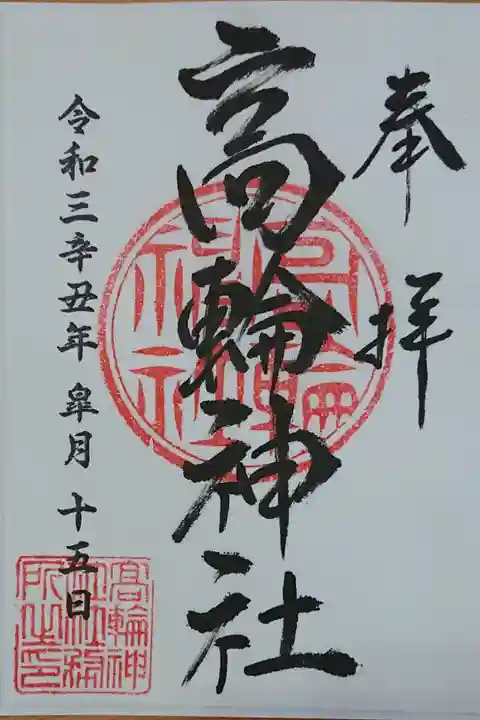 奉拝
高輪神社
令和三辛丑年 皐月 十五日
高輪神社
高輪神
社社務
所之印